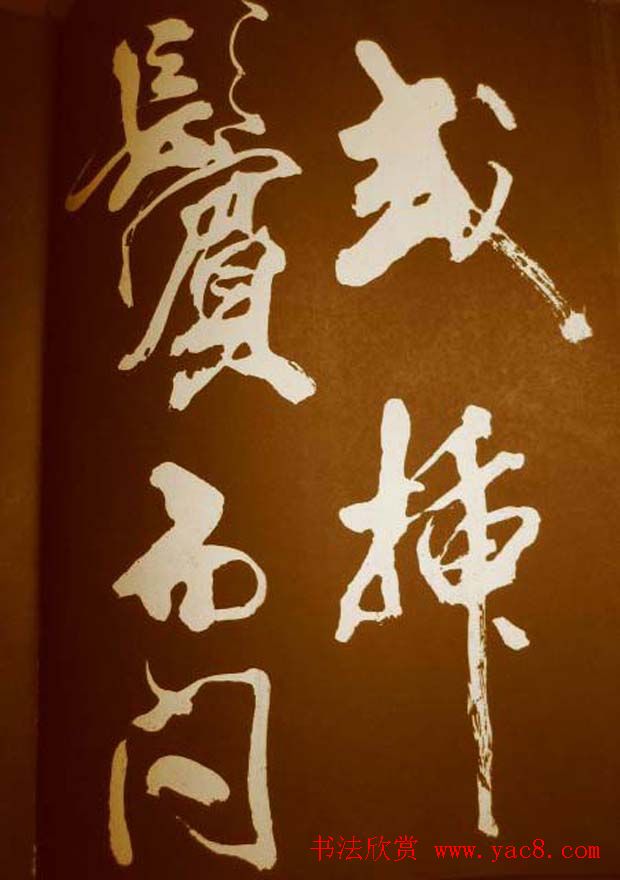 或挿
鬢而問
书法欣赏 www.yac8.com